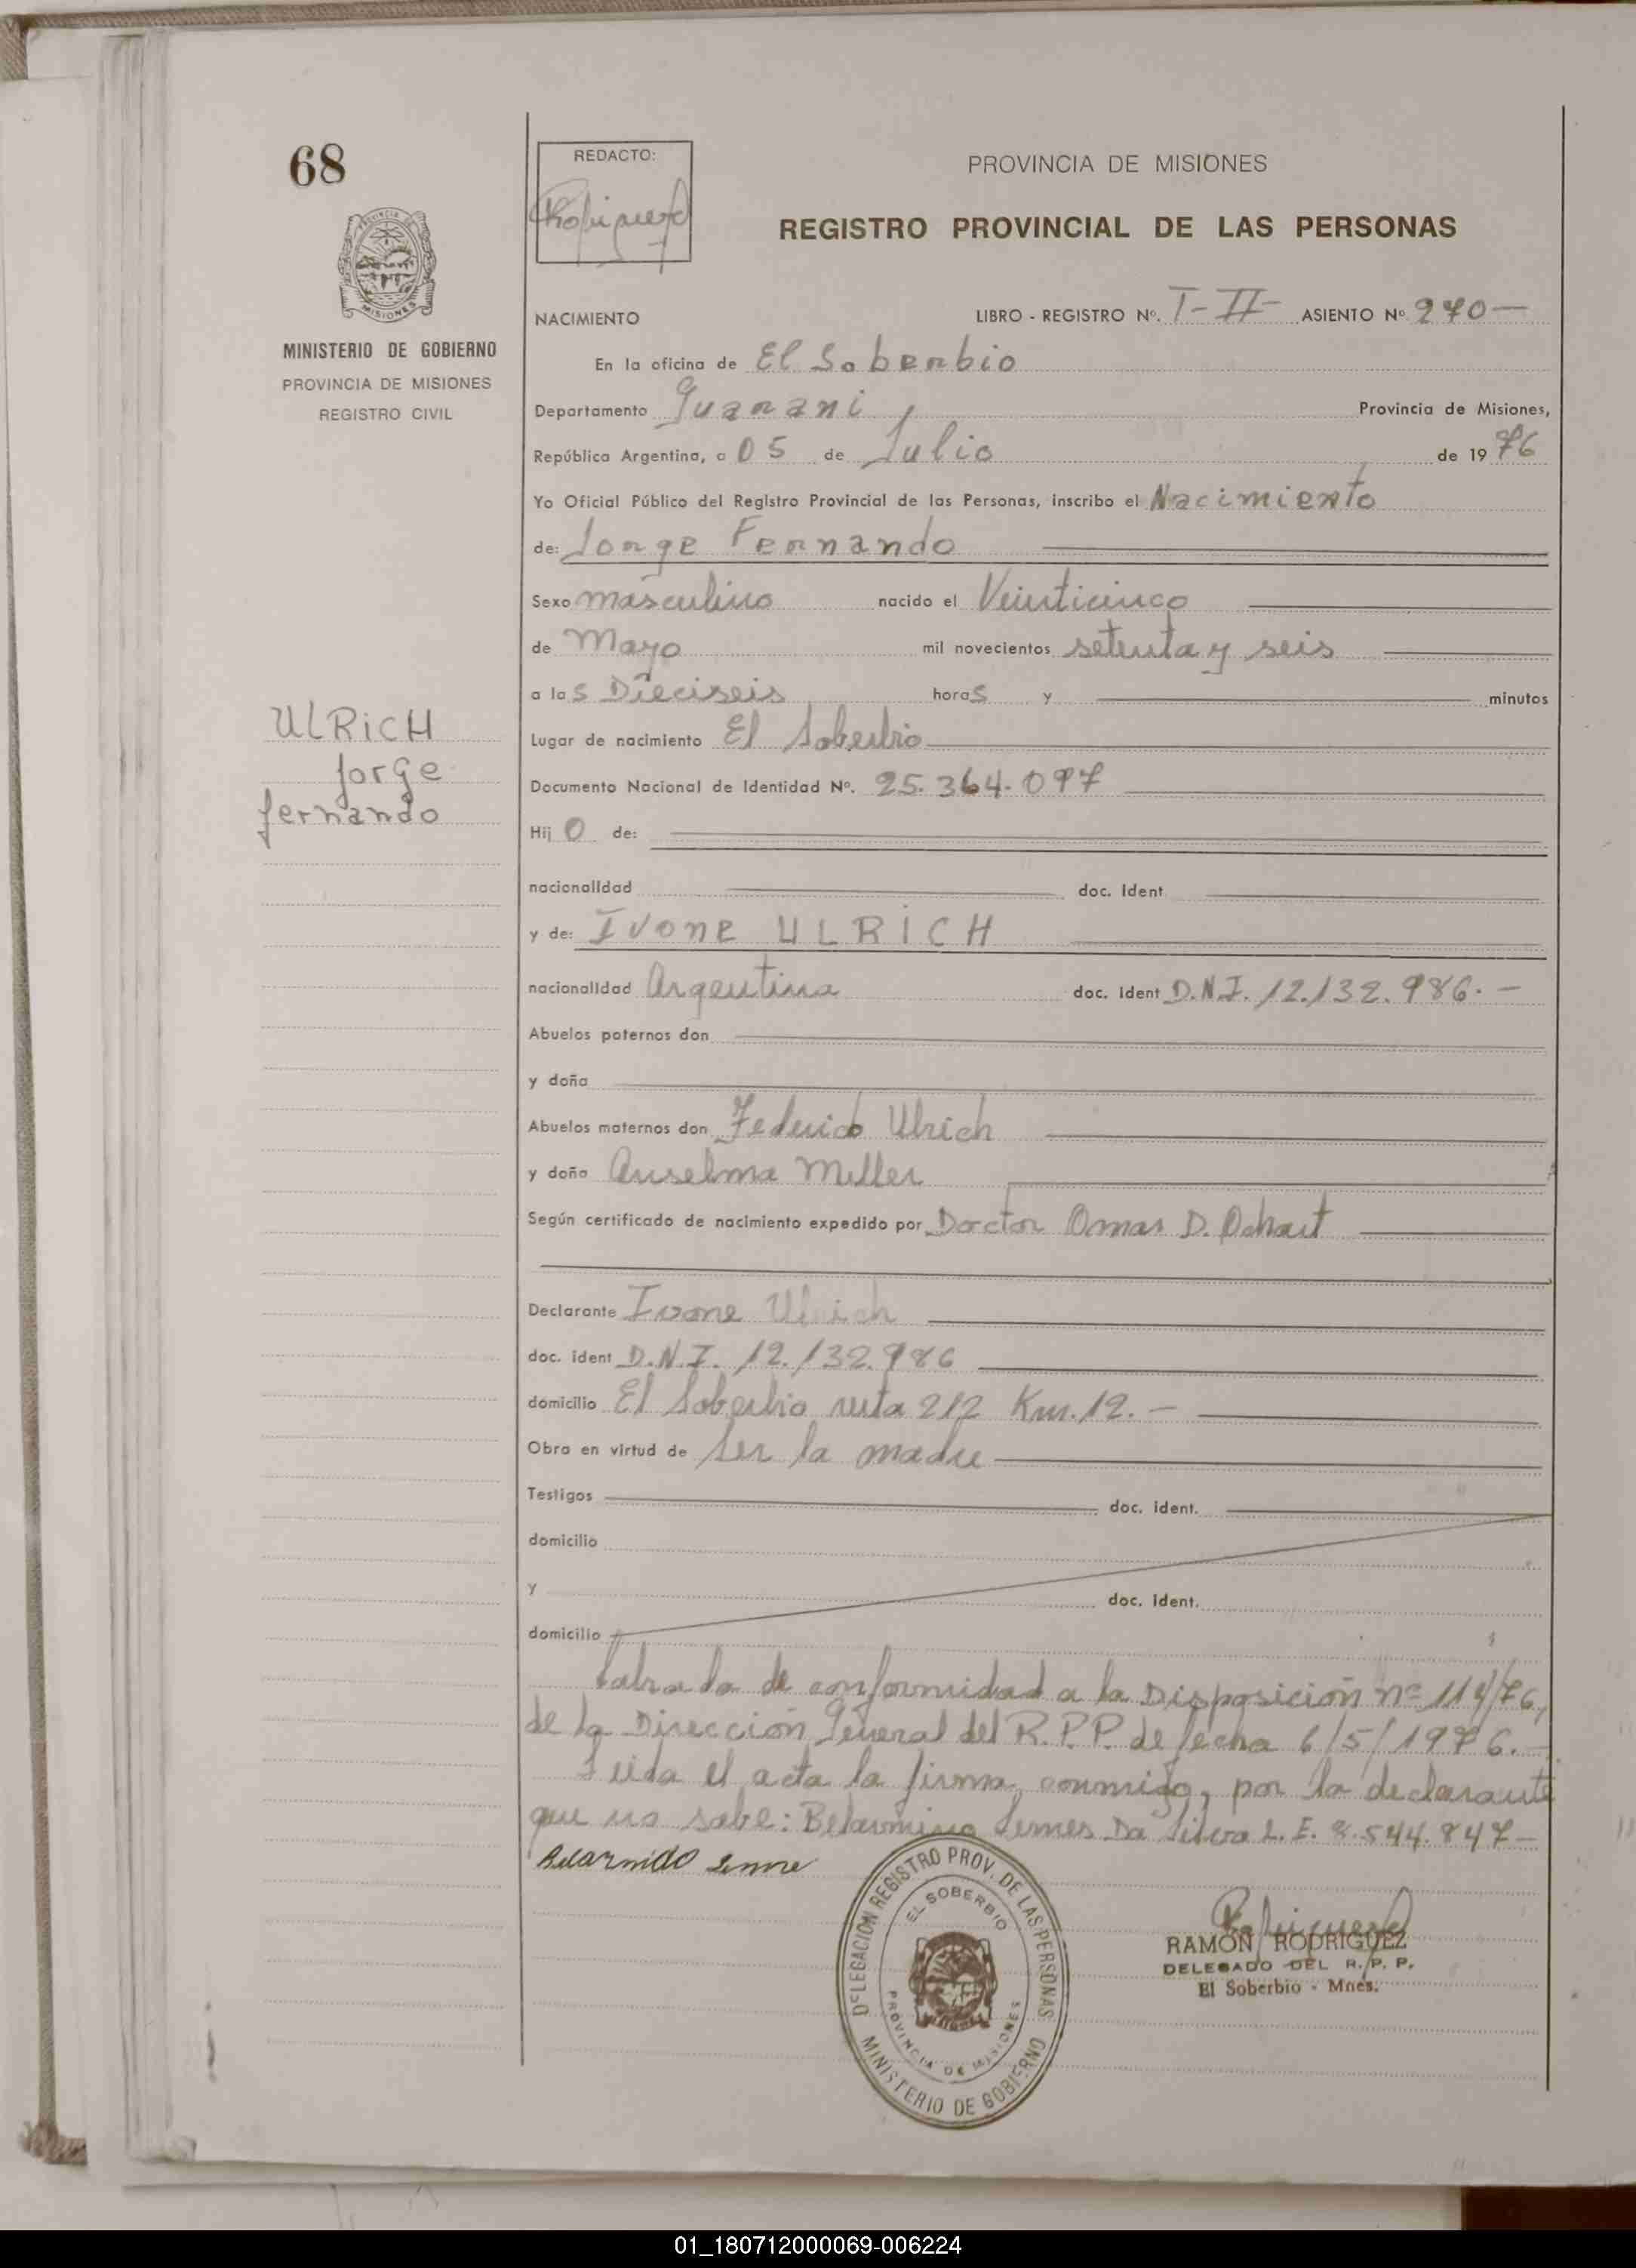 68
REDACTO:
PROVINCIA DE MISIONES
REGISTRO PROVINCIAL DE LAS PERSONAS
PROVINCIA DE
MISIONES
MINISTERIO DE GOBIERNO
PROVINCIA DE MISIONES
REGISTRO CIVIL
NACIMIENTO LIBRO - REGISTRO Nº. T-II- ASIENTO Nº 270-
En la oficina de El Soberbio
Departamento Guarani Provincia de Misiones,
República Argentina, a 05 de Julio de 1976
Yo Oficial Público del Registro Provincial de las Personas, inscribo el Nacimiento
de: Jorge Fernando
Sexo masculino nacido el Veinticinco
de Mayo mil novecientos setenta y seis
a las Dieciseis horas y minutos
ULRICH
Jorge
fernando
Lugar de nacimiento El Soberbio
Documento Nacional de Identidad Nº. 25.364.097
Hijo de:
nacionalidad doc. Ident
y de: IVONE ULRICH
nacionalidad Argentina doc. Ident D.N.I. 12.132.986.-
Abuelos paternos don
y doña
Abuelos maternos don Federico Ulrich
y doña Anselma Miller
Según certificado de nacimiento expedido por Doctor Omar D.
Declarante Ivone Ulrich
doc. ident D.N.I. 12.132.986
domicilio El Soberbio ruta 212 Km.12.-
Obra en virtud de Ser la madre
Testigos doc. ident.
domicilio
y doc. ident.
domicilio
labrada de conformidad a la Disposición nº 114/76,
de la Dirección General del R.P.P. de fecha 6/5/1976.-
Leida el acta la firma conmigo, por la declarante
que no sabe: Belarmino Lemes Da Silva L.E. 8.544.847-
DELEGACION REGISTRO PROV. DE LAS PERSONAS
EL SOBERBIO
PROVINCIA DE MISIONES
MINISTERIO DE GOBIERNO
RAMON RODRIGUEZ
DELEGADO DEL R. P. P.
El Soberbio - Mnes.
01_180712000069-006224